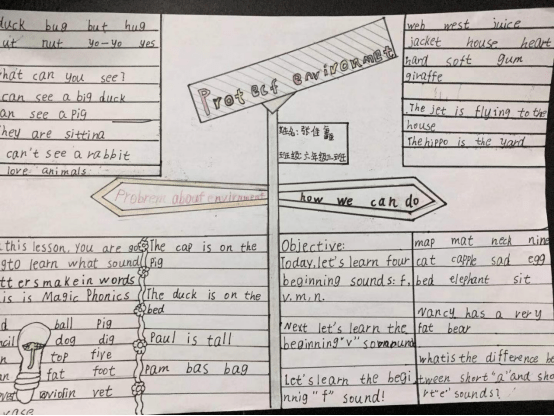 duck bug but hug
ut nut yo-yo yes
hat can you see?
can see a big duck
an see a pig
hey are sitting
can't see a rabbit
love animals
Protecf environmet
姓名:张佳
班级:六年级二班
web west juice
jacket house heart
hard soft gum
giraffe
The jet is flying to the
house
The hippo is the yard
Probrem about environment
how we can do
this lesson, you are go
g to learn what sound
tters make in words
is is Magic Phonics
ball pig
dog dig
top five
fat foot
violin vet
vase
The cap is on the
pig
The duck is on the
bed
Paul is tall
pam bas bag
Objective:
Today, let's learn four
beginning sounds: f,
v. m. n.
Next let's learn the
beginning "v" sound
Let's learn the begi
nnig "f" sound!
map mat neck nine
cat capple sad egg
bed elephant sit
Nancy has a very
fat bear
what is the difference be
tween short "a" and sho
rt "e" sounds?